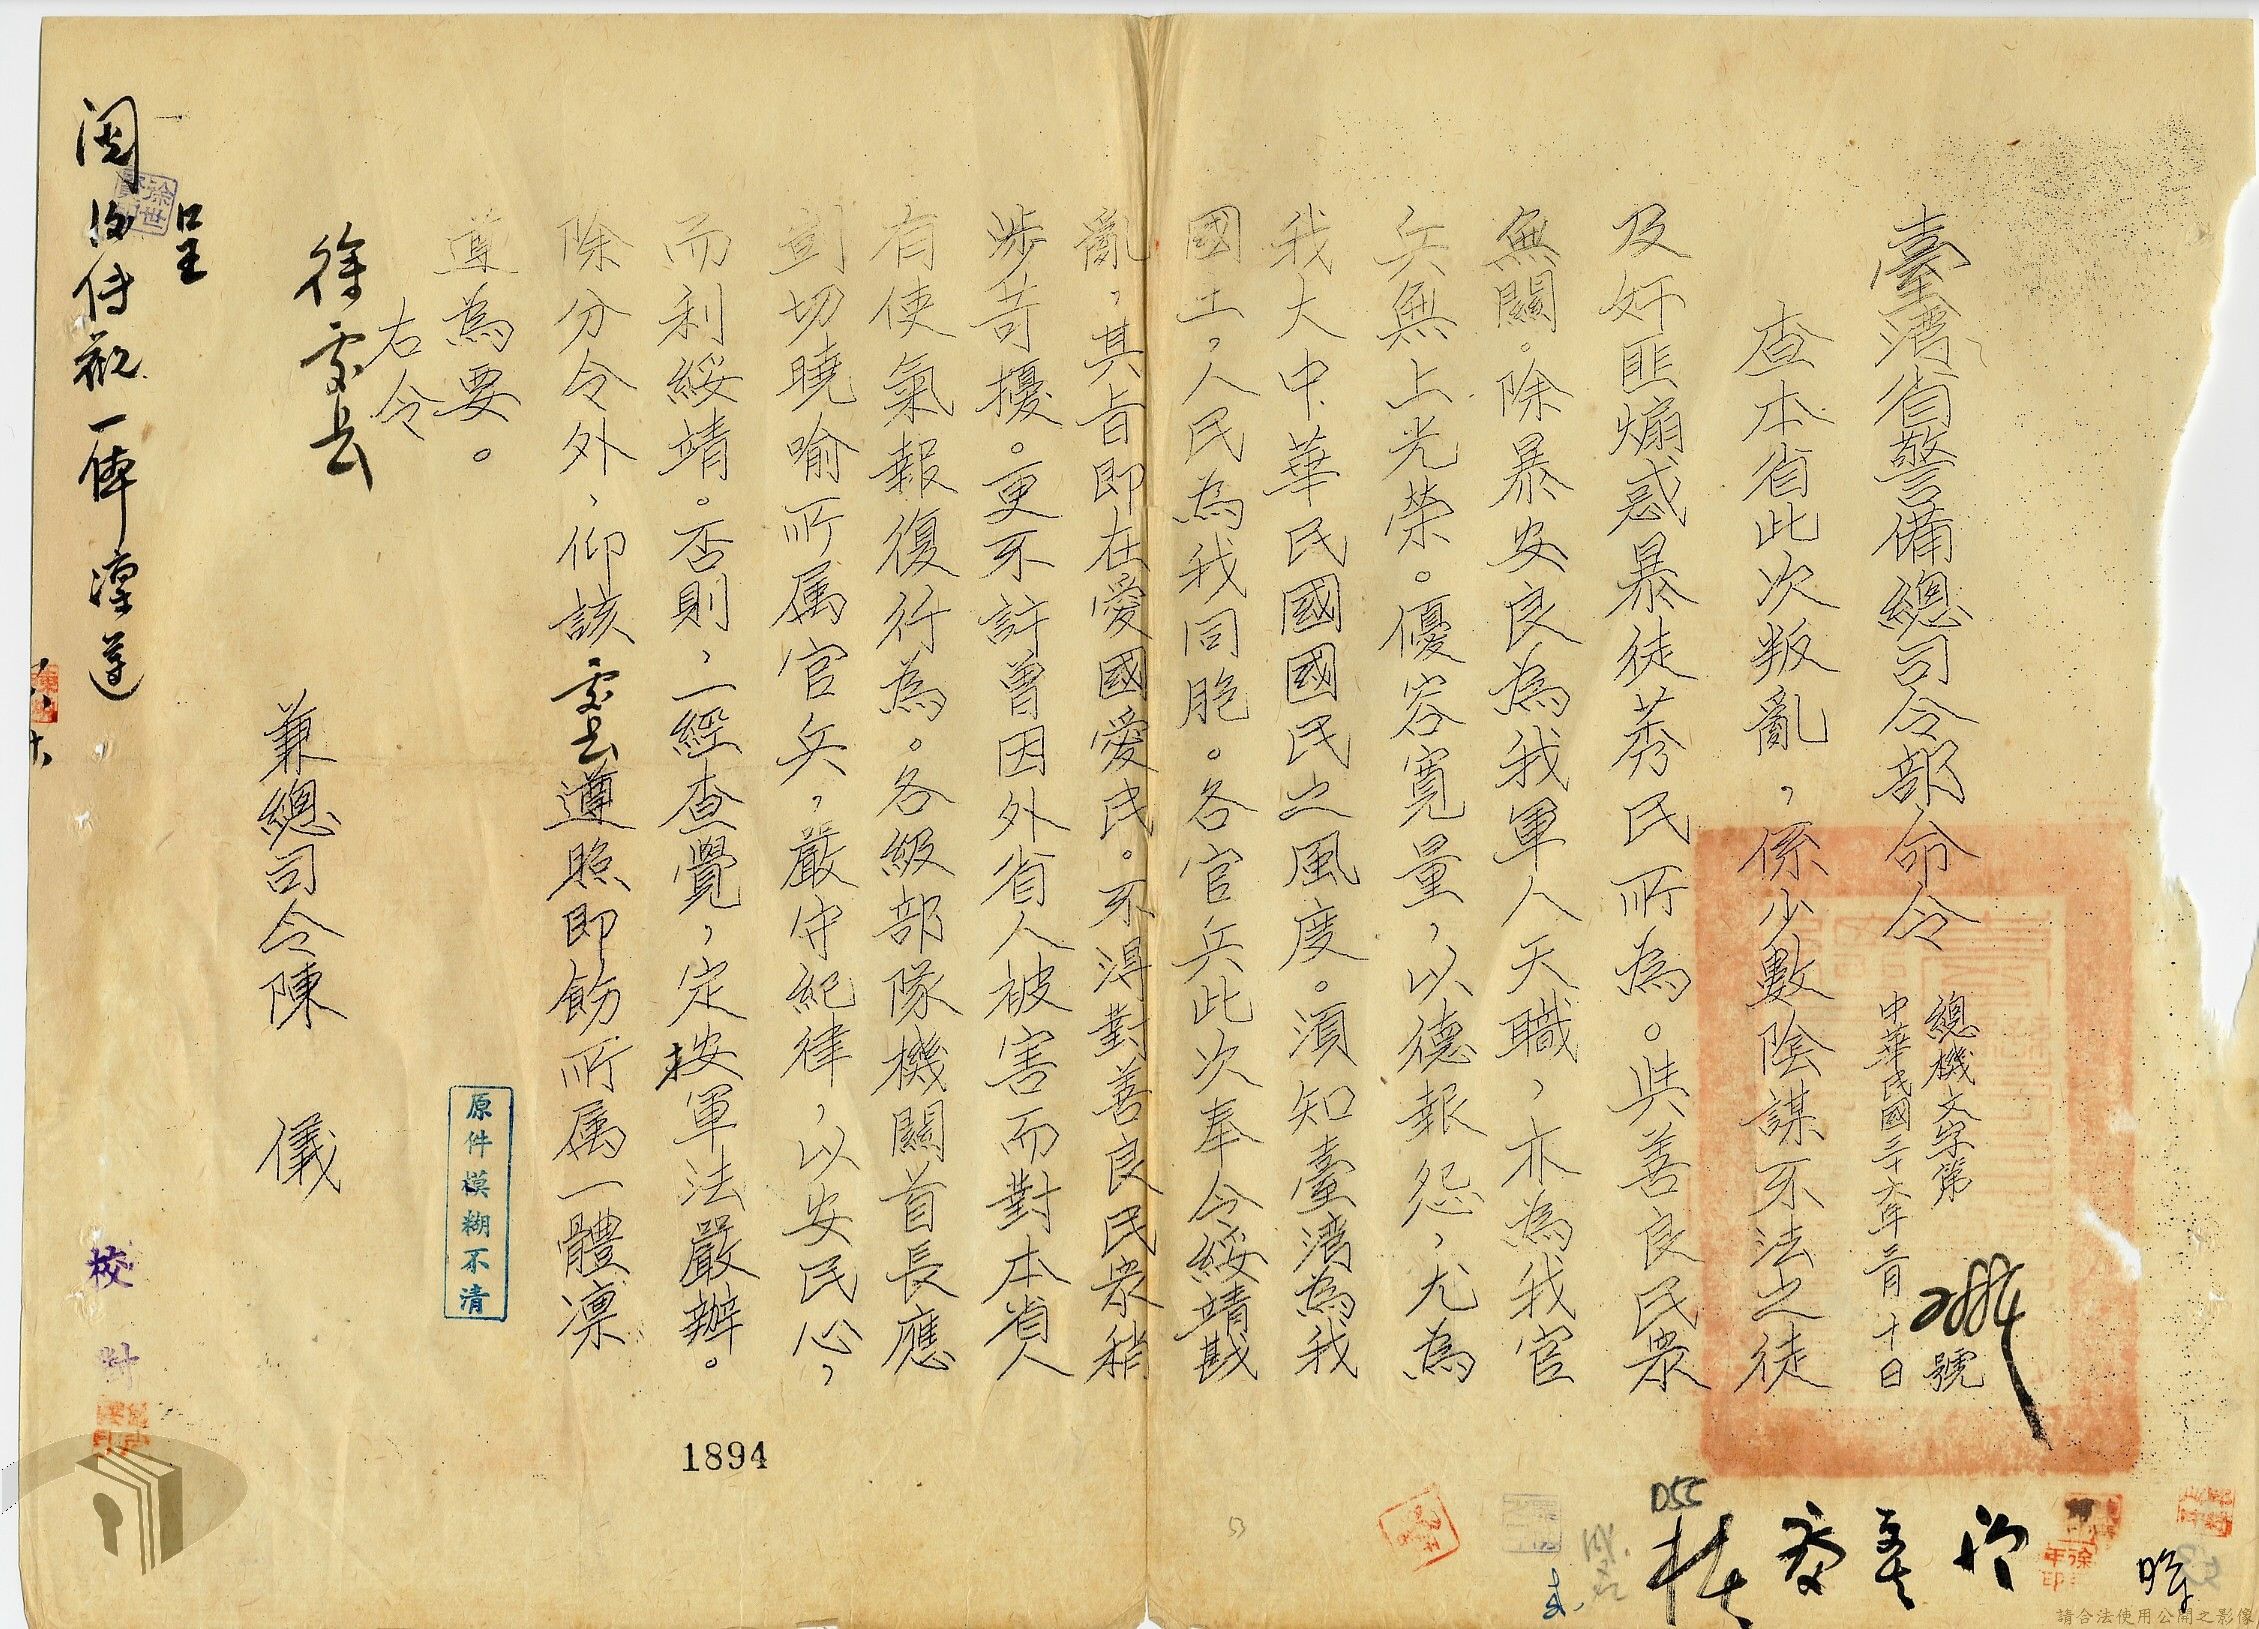 臺灣省警備總司令部命令
總機文字第2884號
中華民國三十六年三月十日
查本省此次叛亂，係少數陰謀不法之徒
及奸匪煽惑暴徒莠民所為。與善良民衆
無關。除暴安良為我軍人天職，亦為我官
兵無上光榮。優容寬量，以德報怨，尤為
我大中華民國國民之風度。須知臺湾為我
國土。人民為我同胞。各官兵此次奉令綏靖戡
亂，其旨即在愛國愛民。不得對善良民衆稍
涉苛擾。更不許曾因外省人被害而對本省人
有使氣報復行為。各級部隊機關首長應
剴切曉喻所属官兵，嚴守紀律，以安民心，
而利綏靖。否則，一經查覺，定按軍法嚴辦。
除分令外，仰該處長遵照即飭所属一體凜
遵為要。
右令
徐處長
兼總司令陳 儀
呈
閱後傳觀一体凜遵
校對
原件模糊不清
1894
D55
53
請合法使用公開之影像